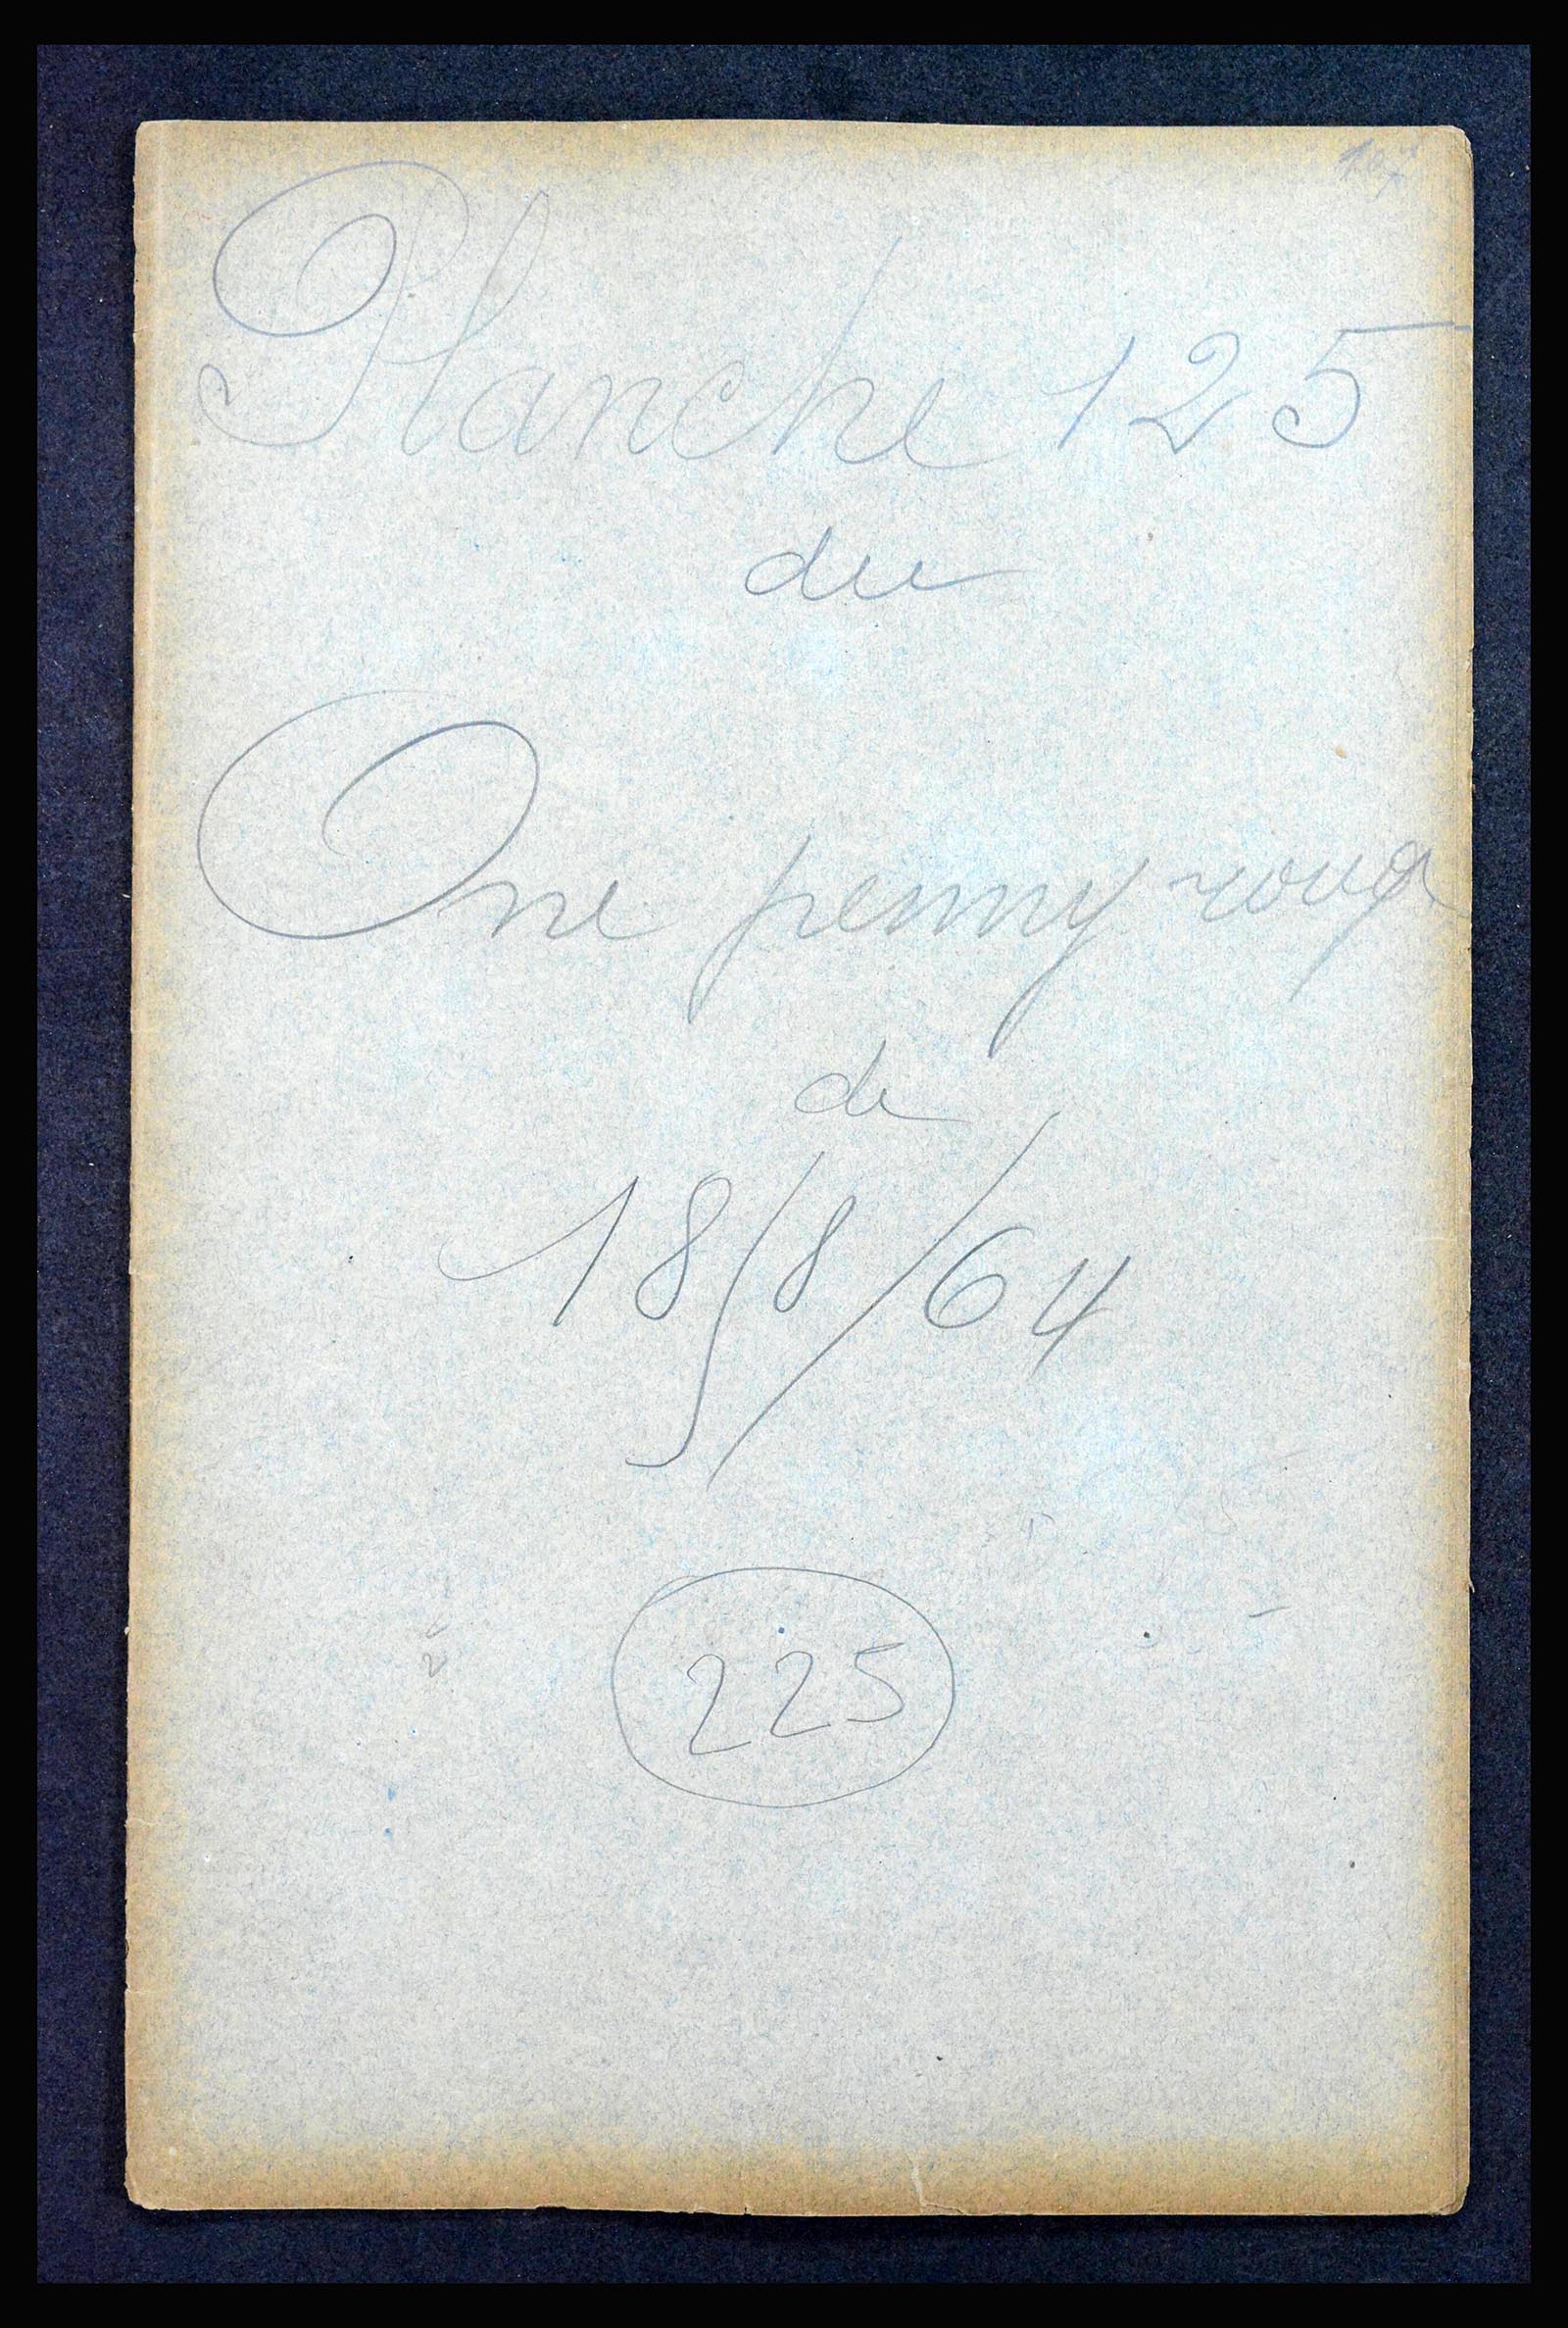 Planche 125
du
One penny rouge
de
18/8/64
225